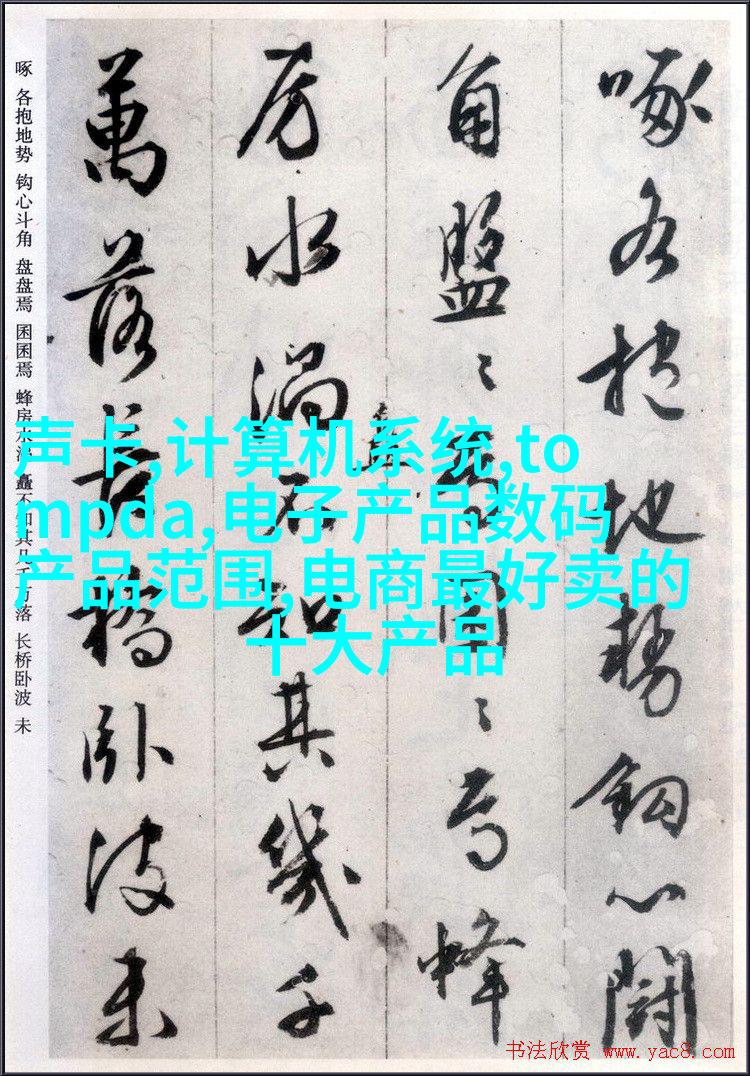 啄各抱地勢鈎心闘
角盤〻焉囷〻焉蜂
房水渦矗不知其幾千
萬落長橋卧波未
啄 各抱地势 钩心斗角 盘盘焉 囷囷焉 蜂房水涡 矗不知其几千万落 长桥卧波 未
声卡,计算机系统,to
mpda,电子产品数码
产品范围,电商最好卖的
十大产品
书法欣赏 www.yac8.com